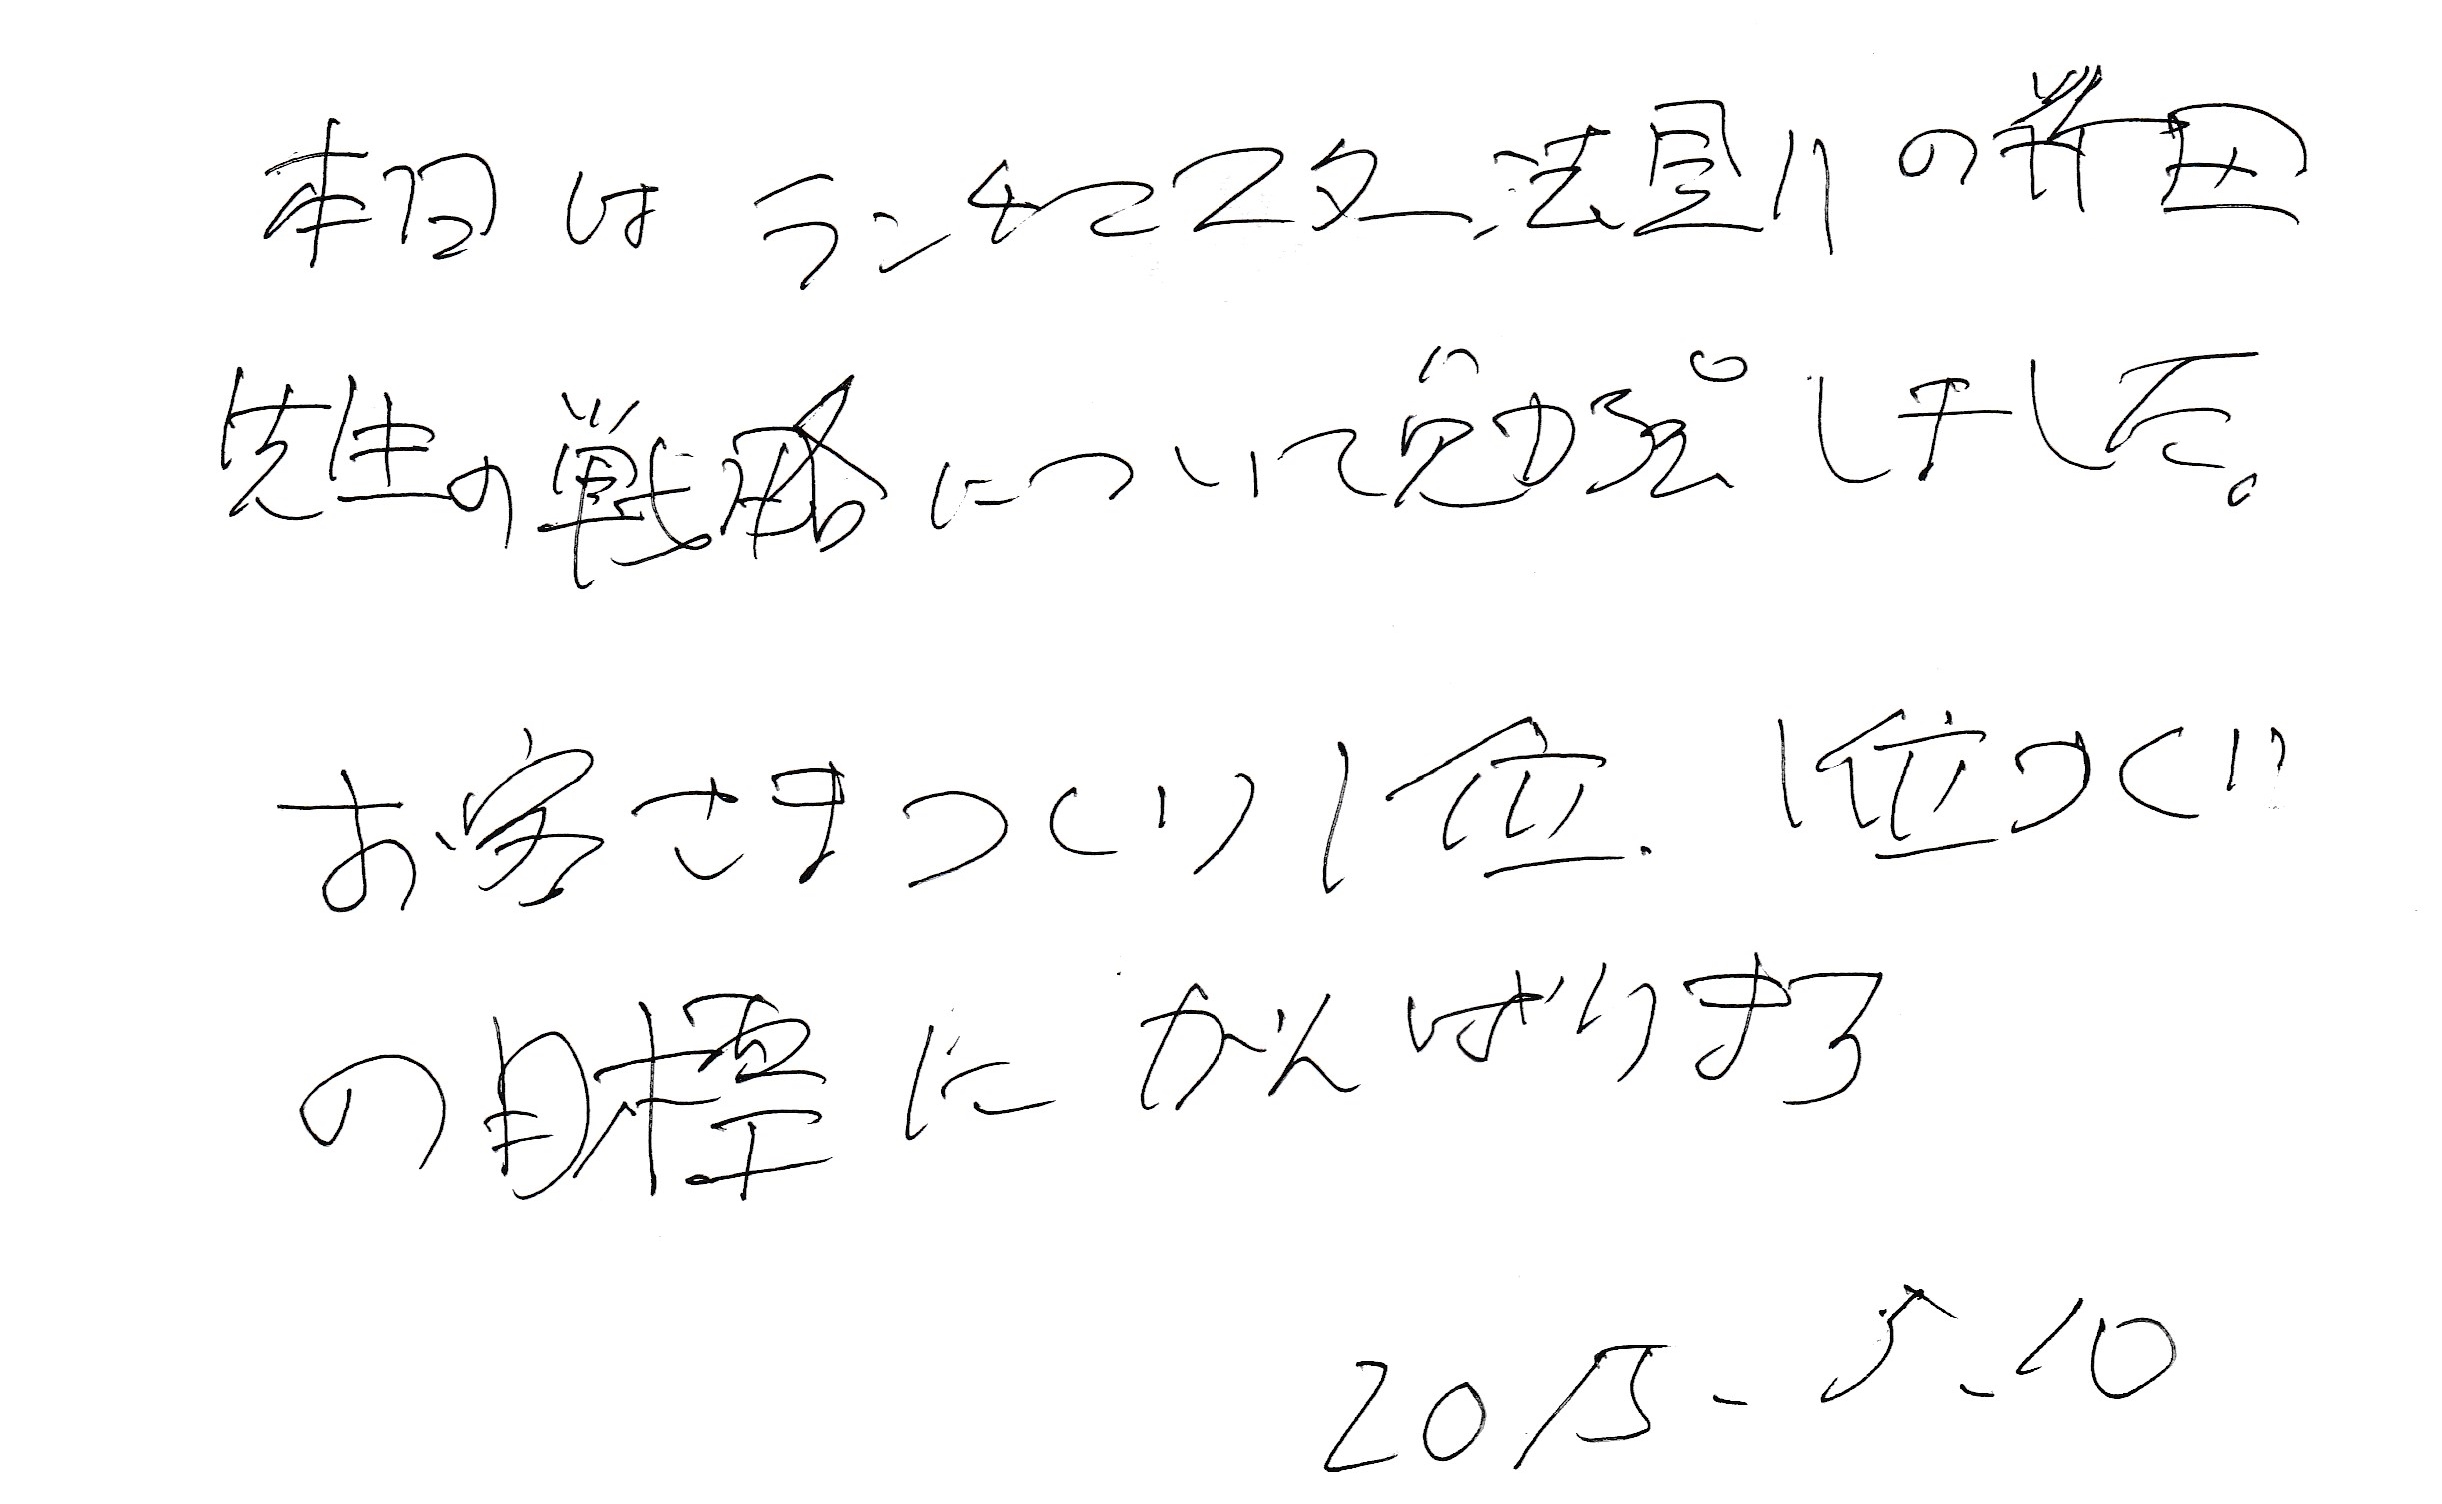 本日はランチェスター法則の竹田
先生の戦略について勉強しました。
お客さまつくり1位、1位つくり
の目標にがんばります
2015-5-10